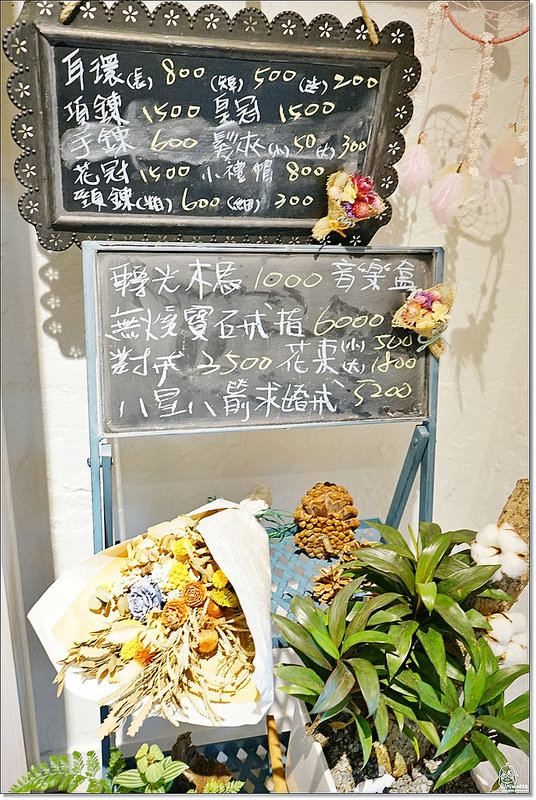 耳環(長)800 (短)500 (迷)200
項鍊 1500 皇冠 1500
手鍊 600 髮夾(小)50(大)300
花冠 1500 小禮帽 800
頸鍊(粗)600(細)300
木馬 1000 音樂盒
無燒寶石戒指 6000
對戒 3500 花束(小)500(大)1800
八星八箭求婚戒 5200